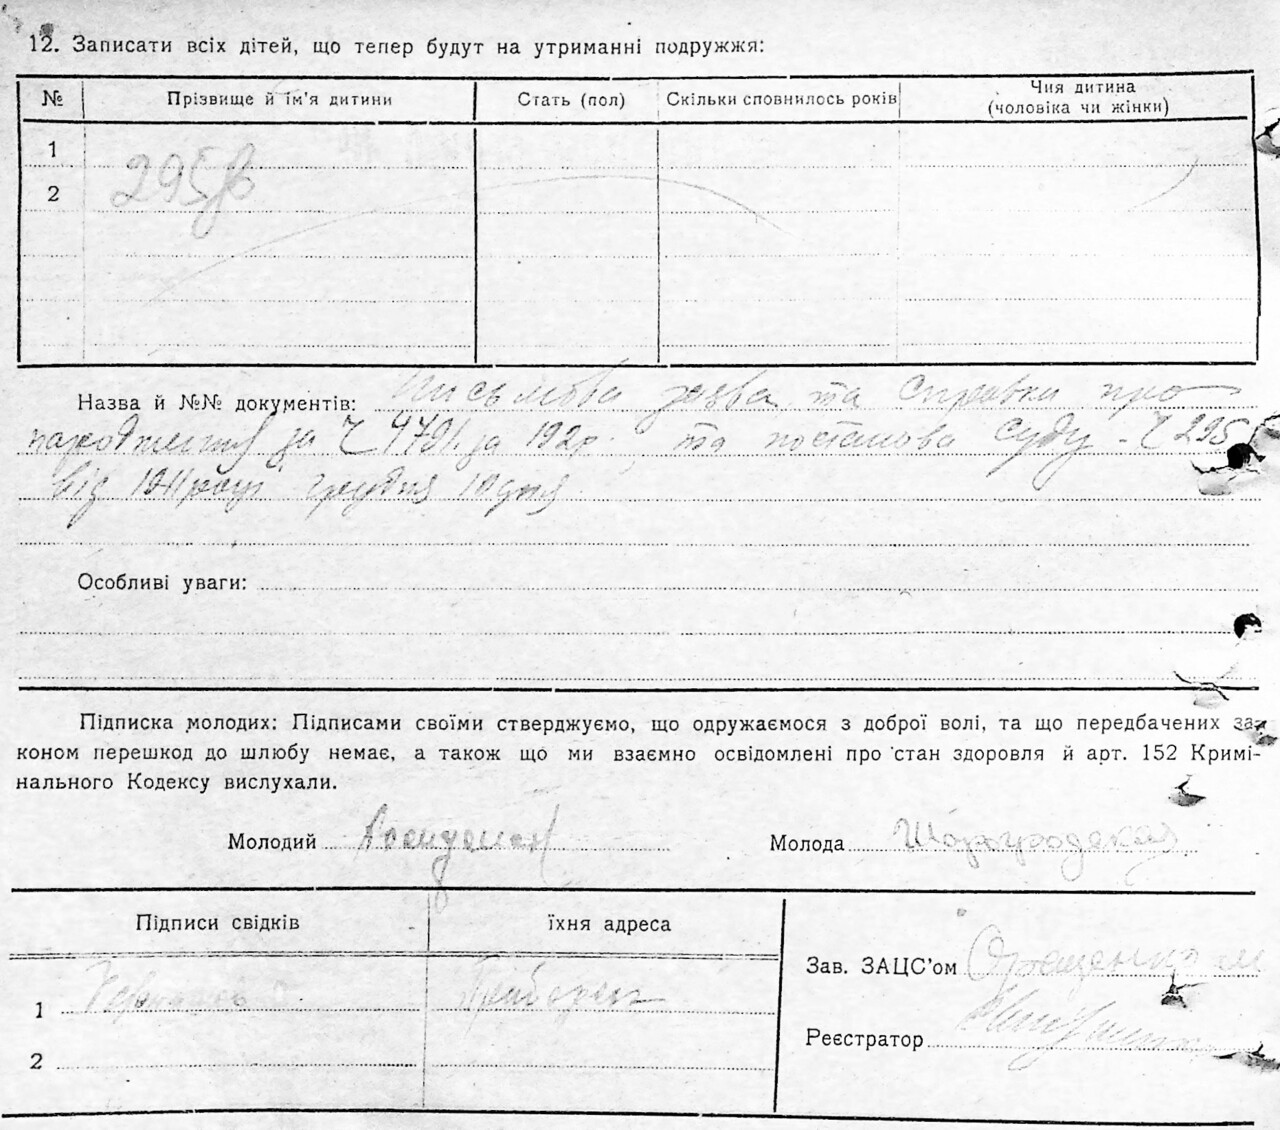 12. Записати всіх дітей, що тепер будут на утриманні подружжя:
№ Прізвище й ім'я дитини Стать (пол) Скільки сповнилось років Чия дитина (чоловіка чи жінки)
1
2 295
Назва й №№ документів: Письмова заява та справки про
народження за 479 за 192 р. та постанова суду 295
від року грудня 10 дня
Особливі уваги:
Підписка молодих: Підписами своїми стверджуємо, що одружаємося з доброї волі, та що передбачених за-
коном перешкод до шлюбу немає, а також що ми взаємно освідомлені про стан здоровля й арт. 152 Кримі-
нального Кодексу вислухали.
Молодий Молода Шаргородская
Підписи свідків їхня адреса
Зав. ЗАЦС'ом
1
Реєстратор
2